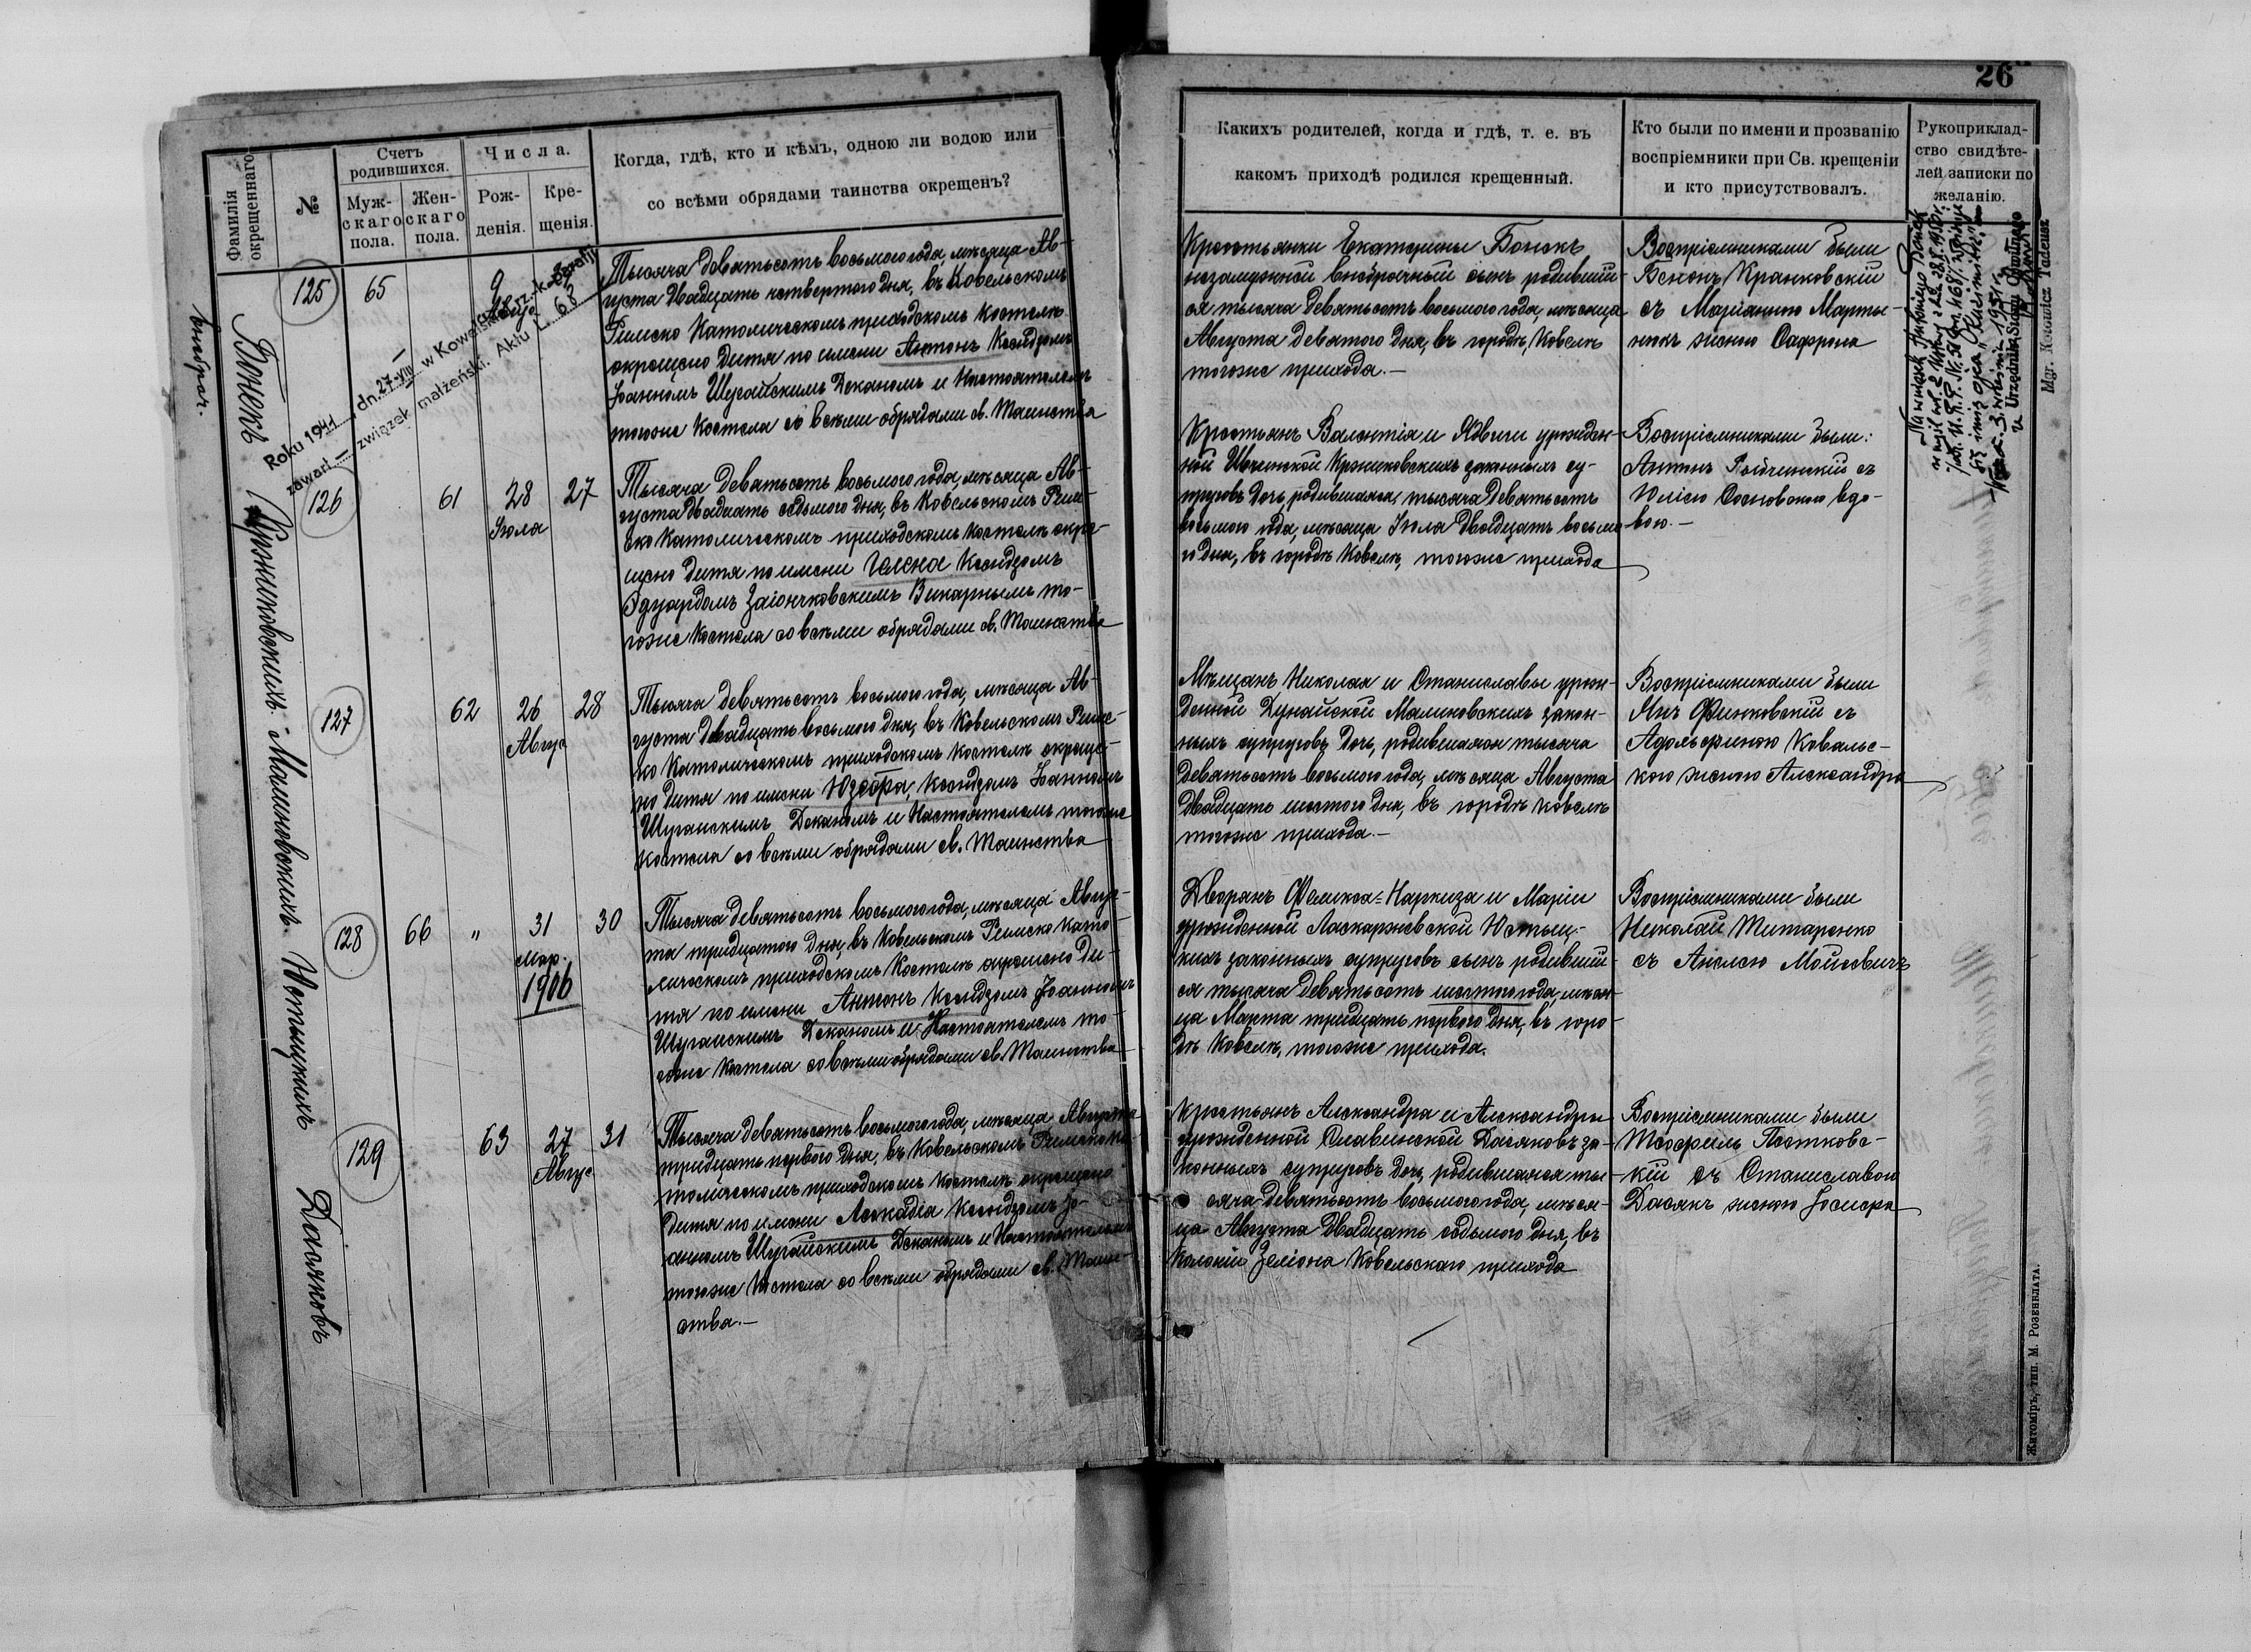 26
Фамилія окрещеннаго
№
Счетъ родившихся.
Мужскаго пола.
Женскаго пола.
Числа.
Рожденія.
Крещенія.
Когда, гдѣ, кто и кѣмъ, одною ли водою или
со всѣми обрядами таинства окрещенъ?
Какихъ родителей, когда и гдѣ, т. е. въ
какомъ приходѣ родился крещенный.
Кто были по имени и прозванію
воспріемники при Св. крещеніи
и кто присутствовалъ.
Рукоприклад-
ство свидѣте-
лей записки по
желанію.
внебрач.
Бонекъ
125
65
9
Авгус
Roku 1941 dn. 27-VIII w Kowelskiej parafji
zawarł związek małżeński. Aktu L. 68
Тысяча девятьсотъ восьмого года, мѣсяца Ав-
густа двадцать четвертого дня, въ Ковельскомъ
Римско Католическомъ приходскомъ костелѣ
окрещено дитя по имени Антонъ Ксендзомъ
Іоанномъ Шугайскимъ Деканомъ и Настоятелемъ
тогоже Костела со всѣми обрядами св. Таинства
Крестьянки Екатерины Бонекъ
незамужней внебрачный сынъ родившій-
ся тысяча девятьсотъ восьмого года, мѣсяца
Августа девятого дня, въ городѣ Ковелѣ
тогоже прихода.—
Воспріемниками были
Зенонъ Кранковскій
съ Маріанною Марты-
нюкъ женою Саффрона
Mgr. Kotowicz Tadeusz
Кржишковскихъ.
126
61
28
Іюля
27
Тысяча девятьсотъ восьмого года, мѣсяца Ав-
густа двадцать седьмого дня, въ Ковельскомъ Рим-
ско Католическомъ приходскомъ костелѣ окре-
щено дитя по имени Гелена Ксендзомъ
Эдуардомъ Заіончковскимъ Викарнымъ то-
гоже Костела со всѣми обрядами св. Таинства
Крестьянъ Валентія и Ядвиги урожден-
ной Кржишковскихъ законныхъ су-
пруговъ дочь, родившаяся тысяча девятьсотъ
восьмого года, мѣсяца Іюля двадцать восьма-
го дня, въ городѣ Ковелѣ, тогоже прихода
Воспріемниками были:
Антонъ съ
Юліею Сосновскою вдо-
вою.—
Малиновскихъ.
127
62
26
Авгус
28
Тысяча девятьсотъ восьмого года, мѣсяца Ав-
густа двадцать восьмого дня, въ Ковельскомъ Римс-
ко Католическомъ приходскомъ костелѣ окреще-
но дитя по имени Юзефа, Ксендзомъ Іоанномъ
Шугайскимъ Деканомъ и Настоятелемъ тогоже
Костела со всѣми обрядами св. Таинства
Мѣщанъ, Николая и Станиславы урож-
денной Дунайской Малиновскихъ закон-
ныхъ супруговъ дочь, родившаяся тысяча
девятьсотъ восьмого года, мѣсяца Августа
двадцать шестого дня, въ городѣ Ковелѣ
тогоже прихода.—
Воспріемниками были
Янъ Финковскій съ
Адольфиною Ковальс-
кою женою Александра
Ястыцкихъ
128
66
"
31
Мар.
1906
30
Тысяча девятьсотъ восьмого года, мѣсяца Авгус-
та тридцатого дня, въ Ковельскомъ Римско Като-
лическомъ приходскомъ Костелѣ окрещено ди-
тя по имени Антонъ Ксендзомъ Іоанномъ
Шугайскимъ Деканомъ и Настоятелемъ то-
гоже Костела со всѣми обрядами св. Таинства
Дворянъ Феликса-Наркиза и Маріи
урожденной Ласкаржевской Юстыц-
кихъ законныхъ супруговъ сынъ родившій-
ся тысяча девятьсотъ шестого года, мѣся-
ца Марта тридцать перваго дня, въ горо-
дѣ Ковелѣ, тогоже прихода.
Воспріемниками были
Николай Титаренко
съ Анелею Мойсевичъ
Дасяковъ
129
63
27
Авгус
31
Тысяча девятьсотъ восьмого года, мѣсяца Августа
тридцать перваго дня, въ Ковельскомъ Римско Ка-
толическомъ приходскомъ Костелѣ окрещено
дитя по имени Леокадія Ксендзомъ Іо-
анномъ Шугайскимъ Деканомъ и Настоятелемъ
тогоже Костела со всѣми обрядами св. Таин-
ства.—
Крестьянъ Александра и Александры
урожденной Славинской Дасяковъ за-
конныхъ супруговъ дочь, родившаяся ты-
сяча девятьсотъ восьмого года, мѣся-
ца Августа двадцать седьмого дня, въ
Колоніи Зеліона Ковельскаго прихода
Воспріемниками были
Теофиль Пютковс-
кій съ Станиславою
Дасякъ женою Іосифа
Житоміръ, тип. М. Розенблата.